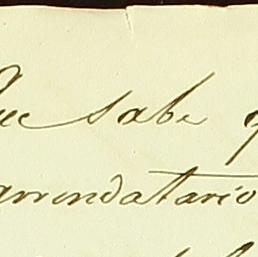 Que sabe q
arrendatario